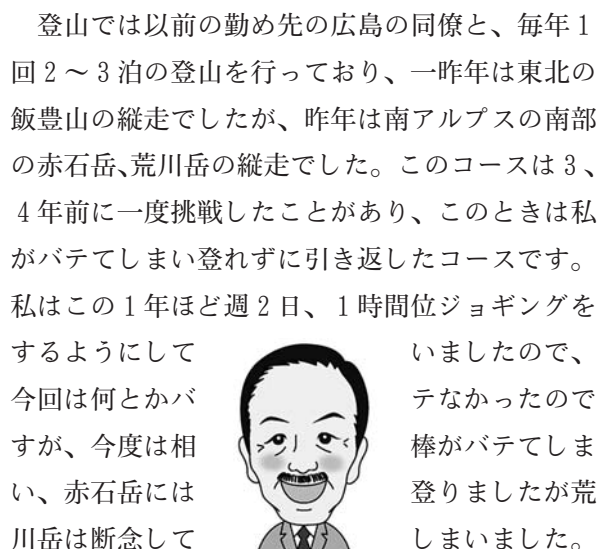 登山では以前の勤め先の広島の同僚と、毎年1
回2～3泊の登山を行っており、一昨年は東北の
飯豊山の縦走でしたが、昨年は南アルプスの南部
の赤石岳、荒川岳の縦走でした。このコースは3、
4年前に一度挑戦したことがあり、このときは私
がバテてしまい登れずに引き返したコースです。
私はこの1年ほど週2日、1時間位ジョギングを
するようにして　いましたので、
今回は何とかバ　テなかったので
すが、今度は相　棒がバテてしま
い、赤石岳には　登りましたが荒
川岳は断念して　しまいました。